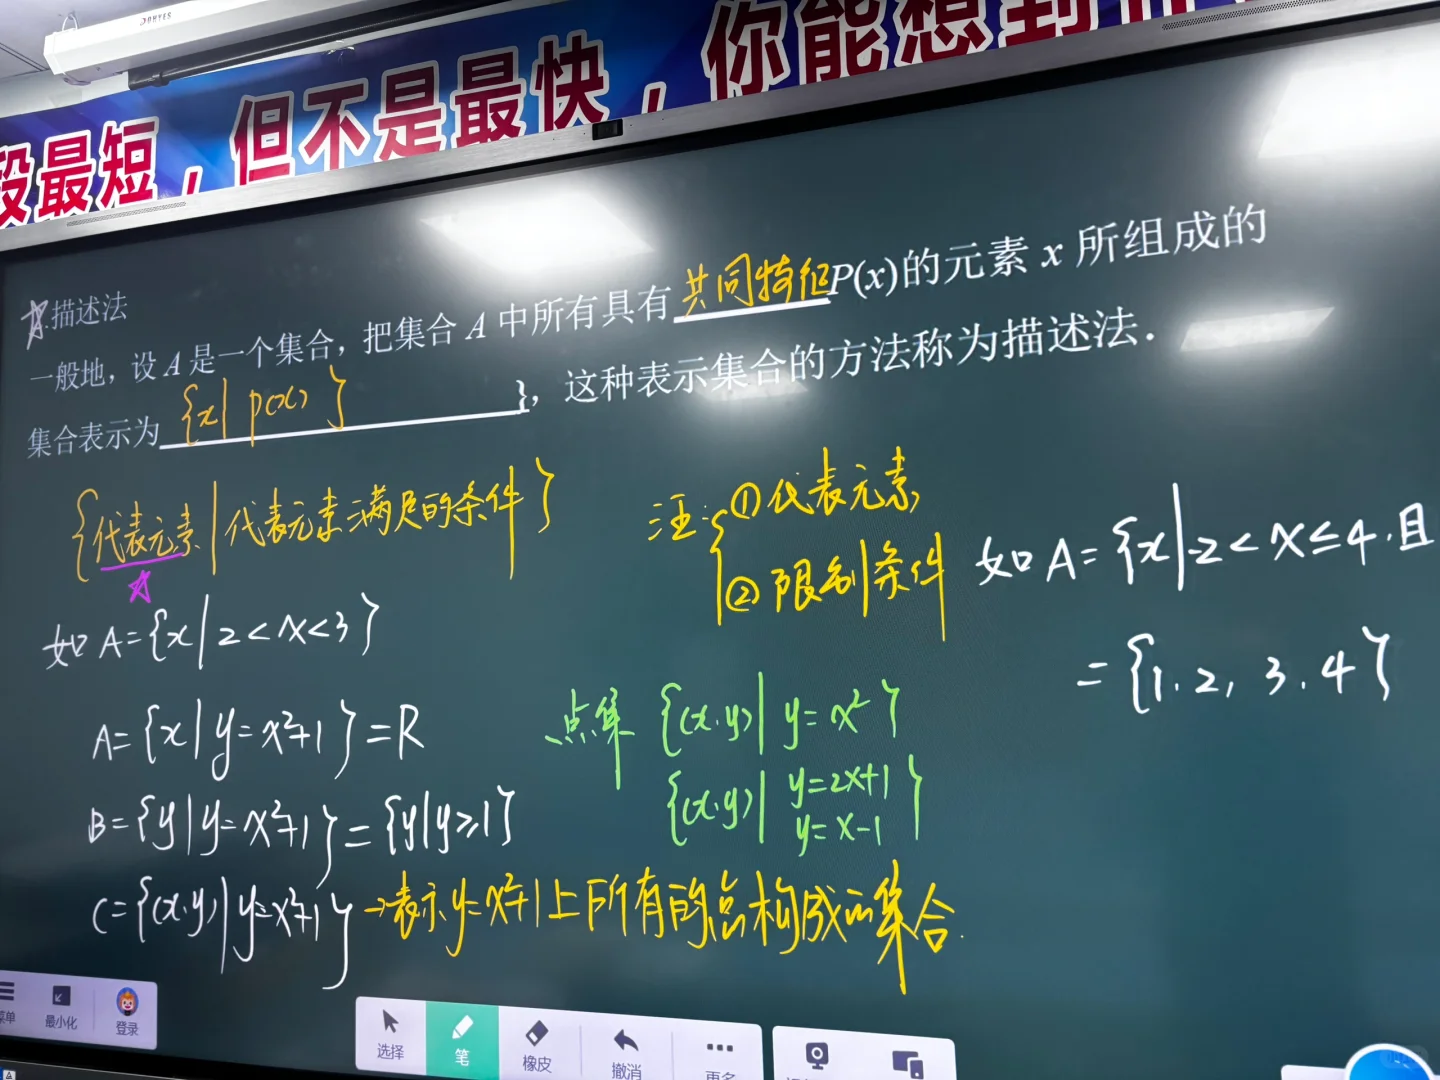 DONYES
段最短，但不是最快，你能想到
描述法
一般地，设 A 是一个集合，把集合 A 中所有具有共同特征P(x)的元素 x 所组成的
集合表示为{x| p(x) }}，这种表示集合的方法称为描述法．
{代表元素|代表元素满足的条件}
注：①代表元素
②限制条件
如 A={x|-2<x≤4.且
={1.2, 3.4}
如 A={x|2<x<3}
A={x|y=x²+1}=R
B={y|y=x²+1}={y|y≥1}
C={(x.y)|y=x²+1}→表示y=x²+1上所有的点构成的集合.
点集 {(x.y)|y=x²}
{(x.y)|y=2x+1
y=x-1}
菜单
最小化
登录
选择
笔
橡皮
撤消
更多